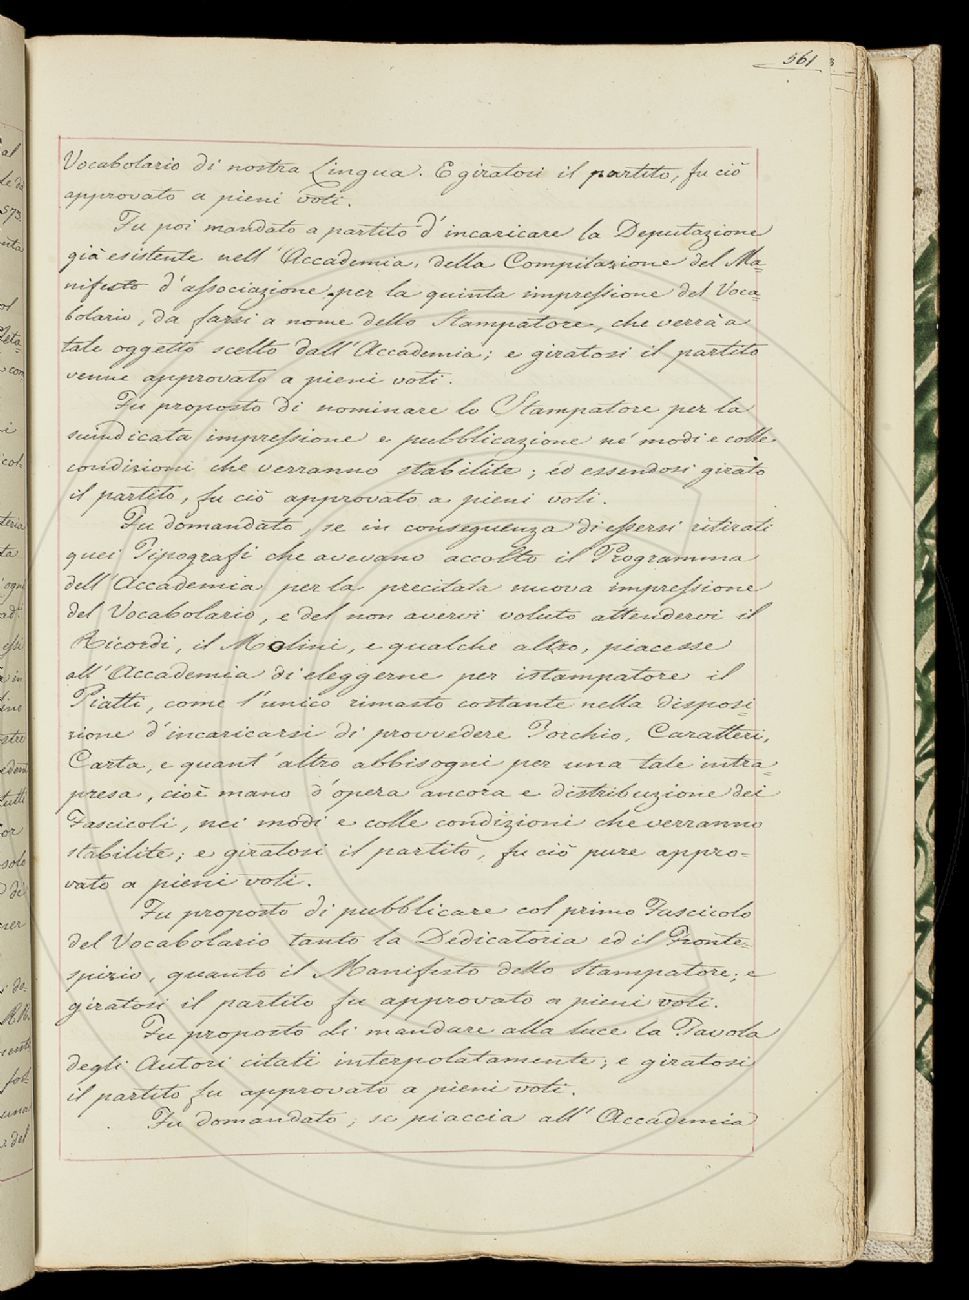 561
Vocabolario di nostra Lingua. E giratosi il partito, fu ciò
approvato a pieni voti.
Fu poi mandato a partito d'incaricare la Deputazione
già esistente nell'Accademia, della Compilazione del Ma=
nifesto d'associazione per la quinta impressione del Voca=
bolario, da farsi a nome dello Stampatore, che verrà a
tale oggetto scelto dall'Accademia; e giratosi il partito
venne approvato a pieni voti.
Fu proposto di nominare lo Stampatore per la
suindicata impressione e pubblicazione né modi e colle
condizioni che verranno stabilite; ed essendosi girato
il partito, fu ciò approvato a pieni voti.
Fu domandato, se in conseguenza di essersi ritirati
quei Tipografi che avevano accolto il Programma
dell'Accademia per la precitata nuova impressione
del Vocabolario, e del non avervi voluto attendervi il
Ricordi, il Molini, e qualche altro, piacesse
all'Accademia di eleggerne per istampatore il
Piatti, come l'unico rimasto costante nella disposi=
zione d'incaricarsi di provvedere Torchio, Caratteri,
Carta, e quant'altro abbisogni per una tale intra=
presa, cioè mano d'opera ancora e distribuzione dei
Fascicoli, nei modi e colle condizioni che verranno
stabilite; e giratosi il partito, fu ciò pure appro=
vato a pieni voti.
Fu proposto di pubblicare col primo Fascicolo
del Vocabolario tanto la Dedicatoria ed il Fronte=
spizio, quanto il Manifesto dello Stampatore; e
giratosi il partito fu approvato a pieni voti.
Fu proposto di mandare alla luce la Tavola
degli Autori citati interpolatamente; e giratosi
il partito fu approvato a pieni voti.
Fu domandato, se piaccia all'Accademia